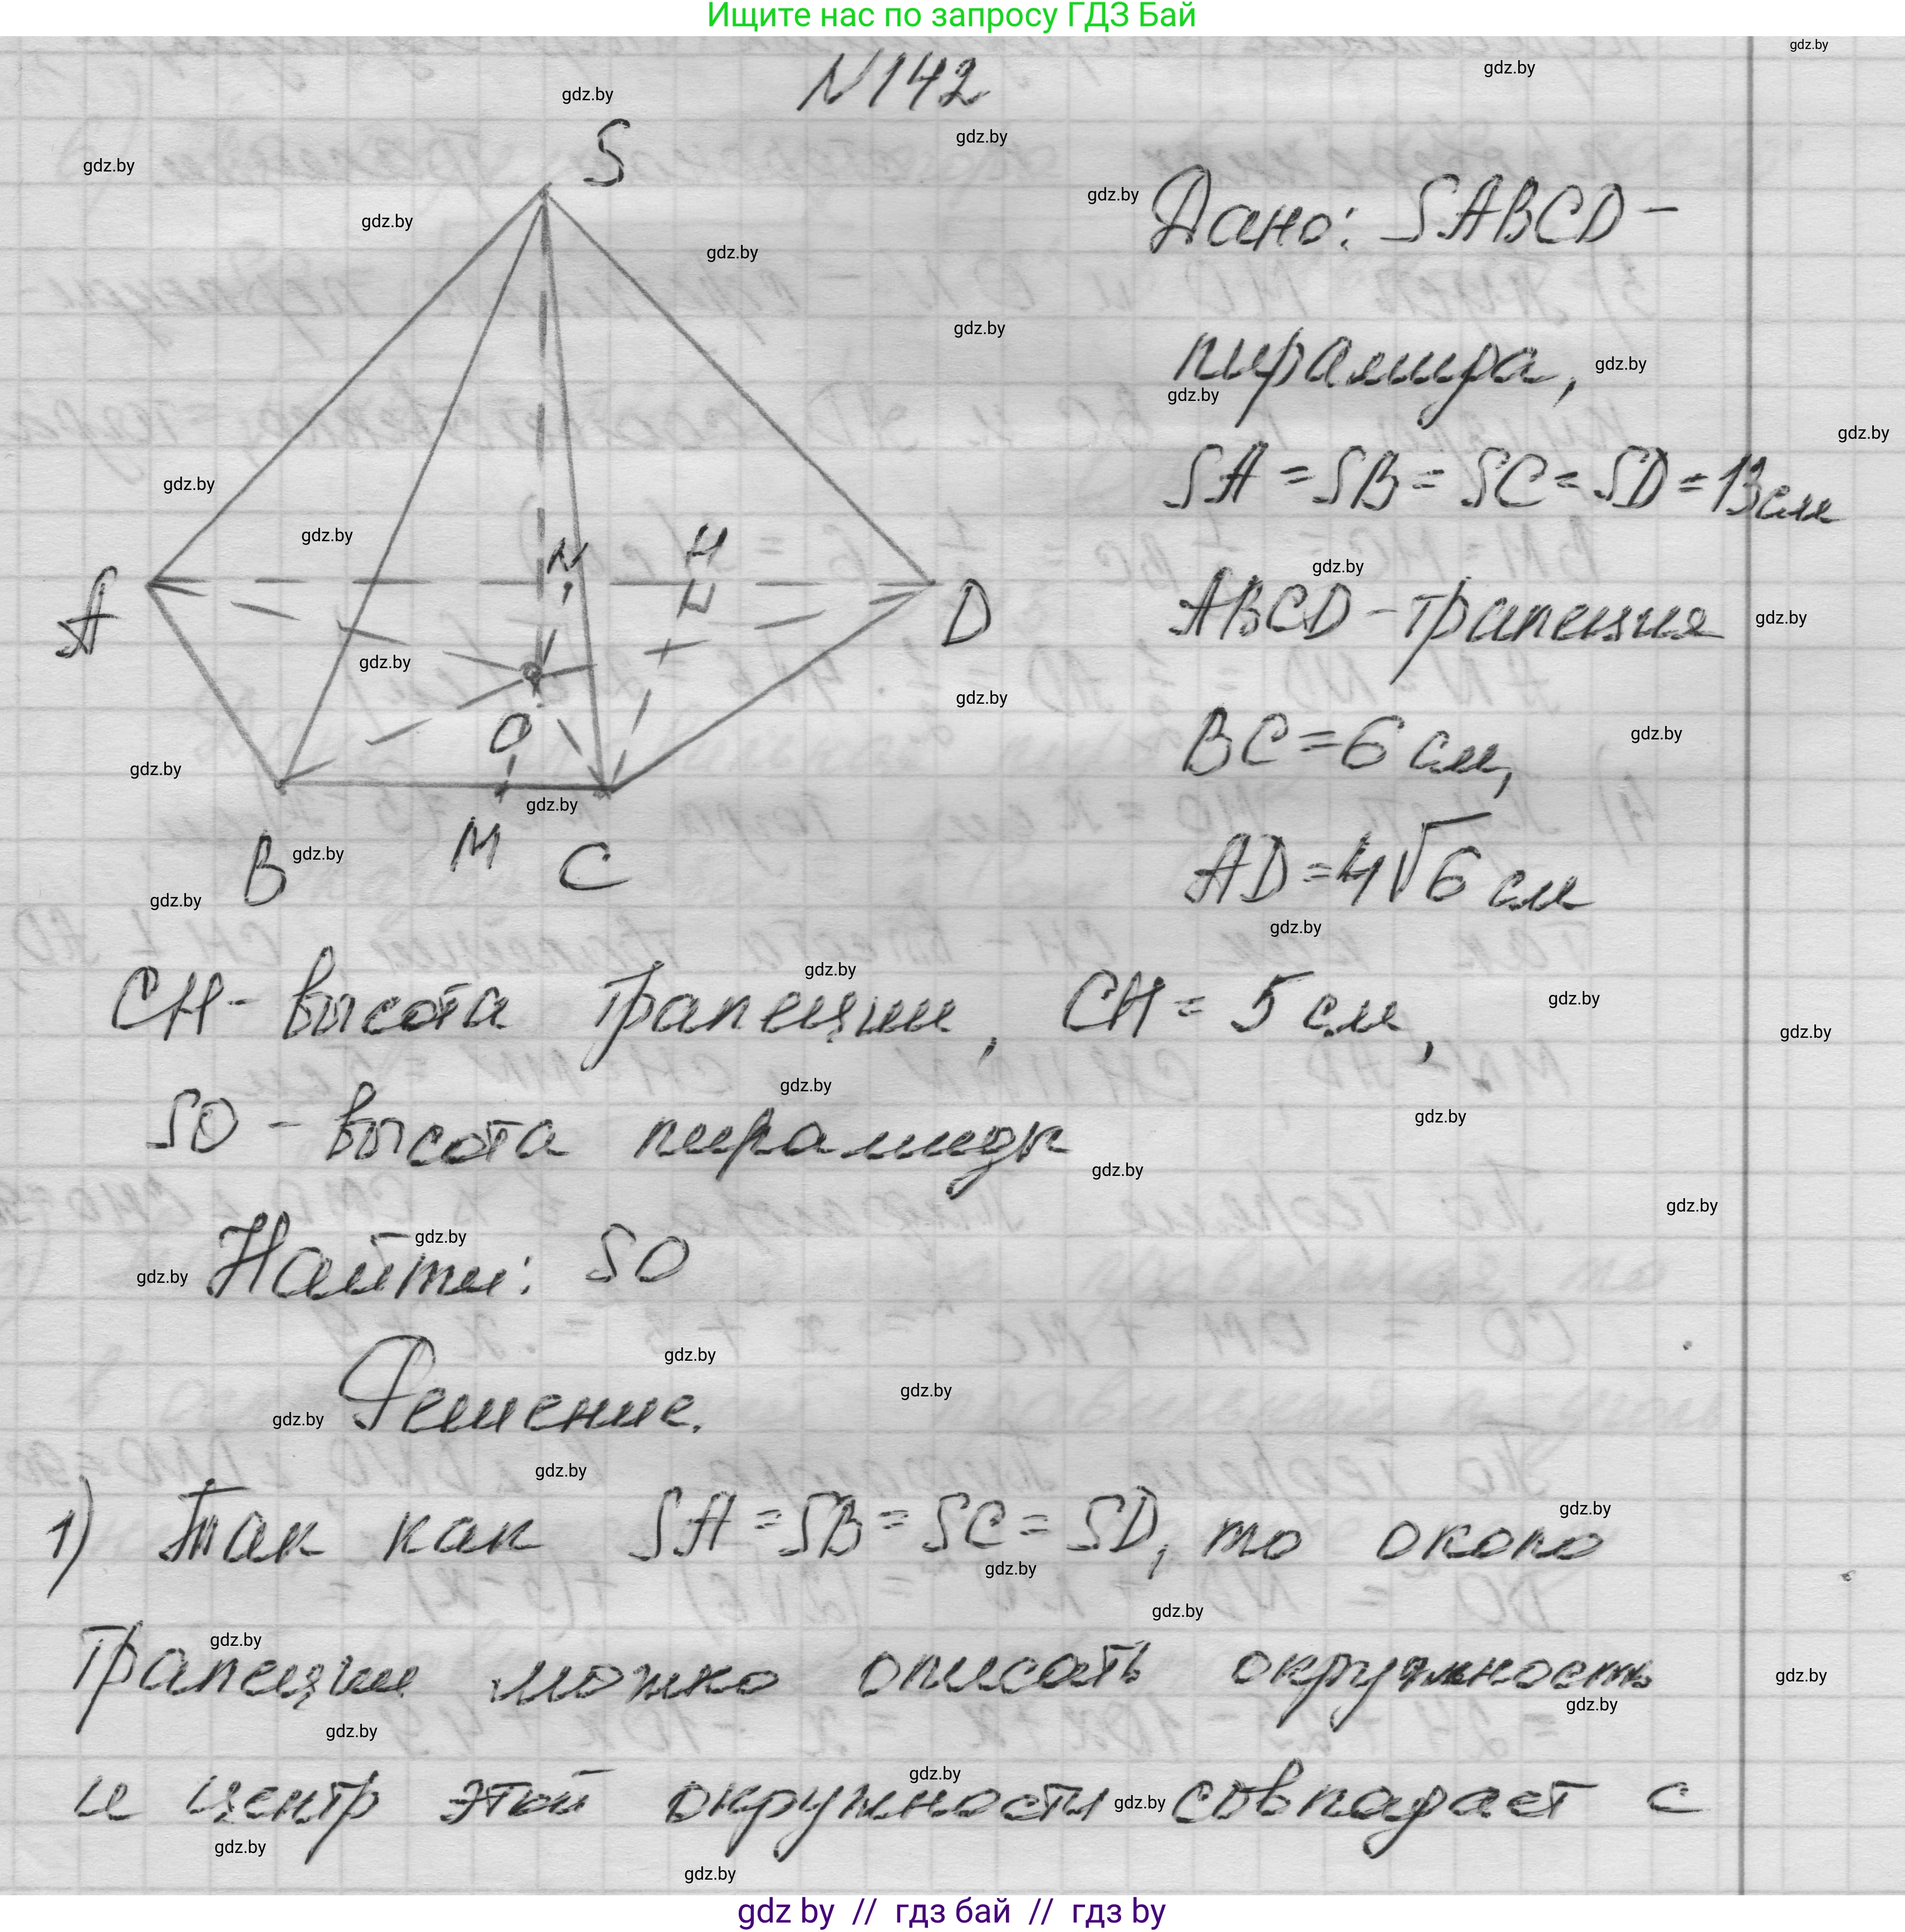 Ищите нас по запросу ГДЗ Бай
N142
S
A
N
H
D
O
B
M
C
Дано: SABCD -
пирамида,
SA = SB = SC = SD = 13 см
ABCD - трапеция
BC = 6 см,
AD = 4√6 см
CH - высота трапеции, CH = 5 см,
SO - высота пирамиды
Найти: SO
Решение.
1) Так как SA = SB = SC = SD, то около
трапеции можно описать окружность
и центр этой окружности совпадает с
gdz by // гдз бай // гдз by
gdz.by